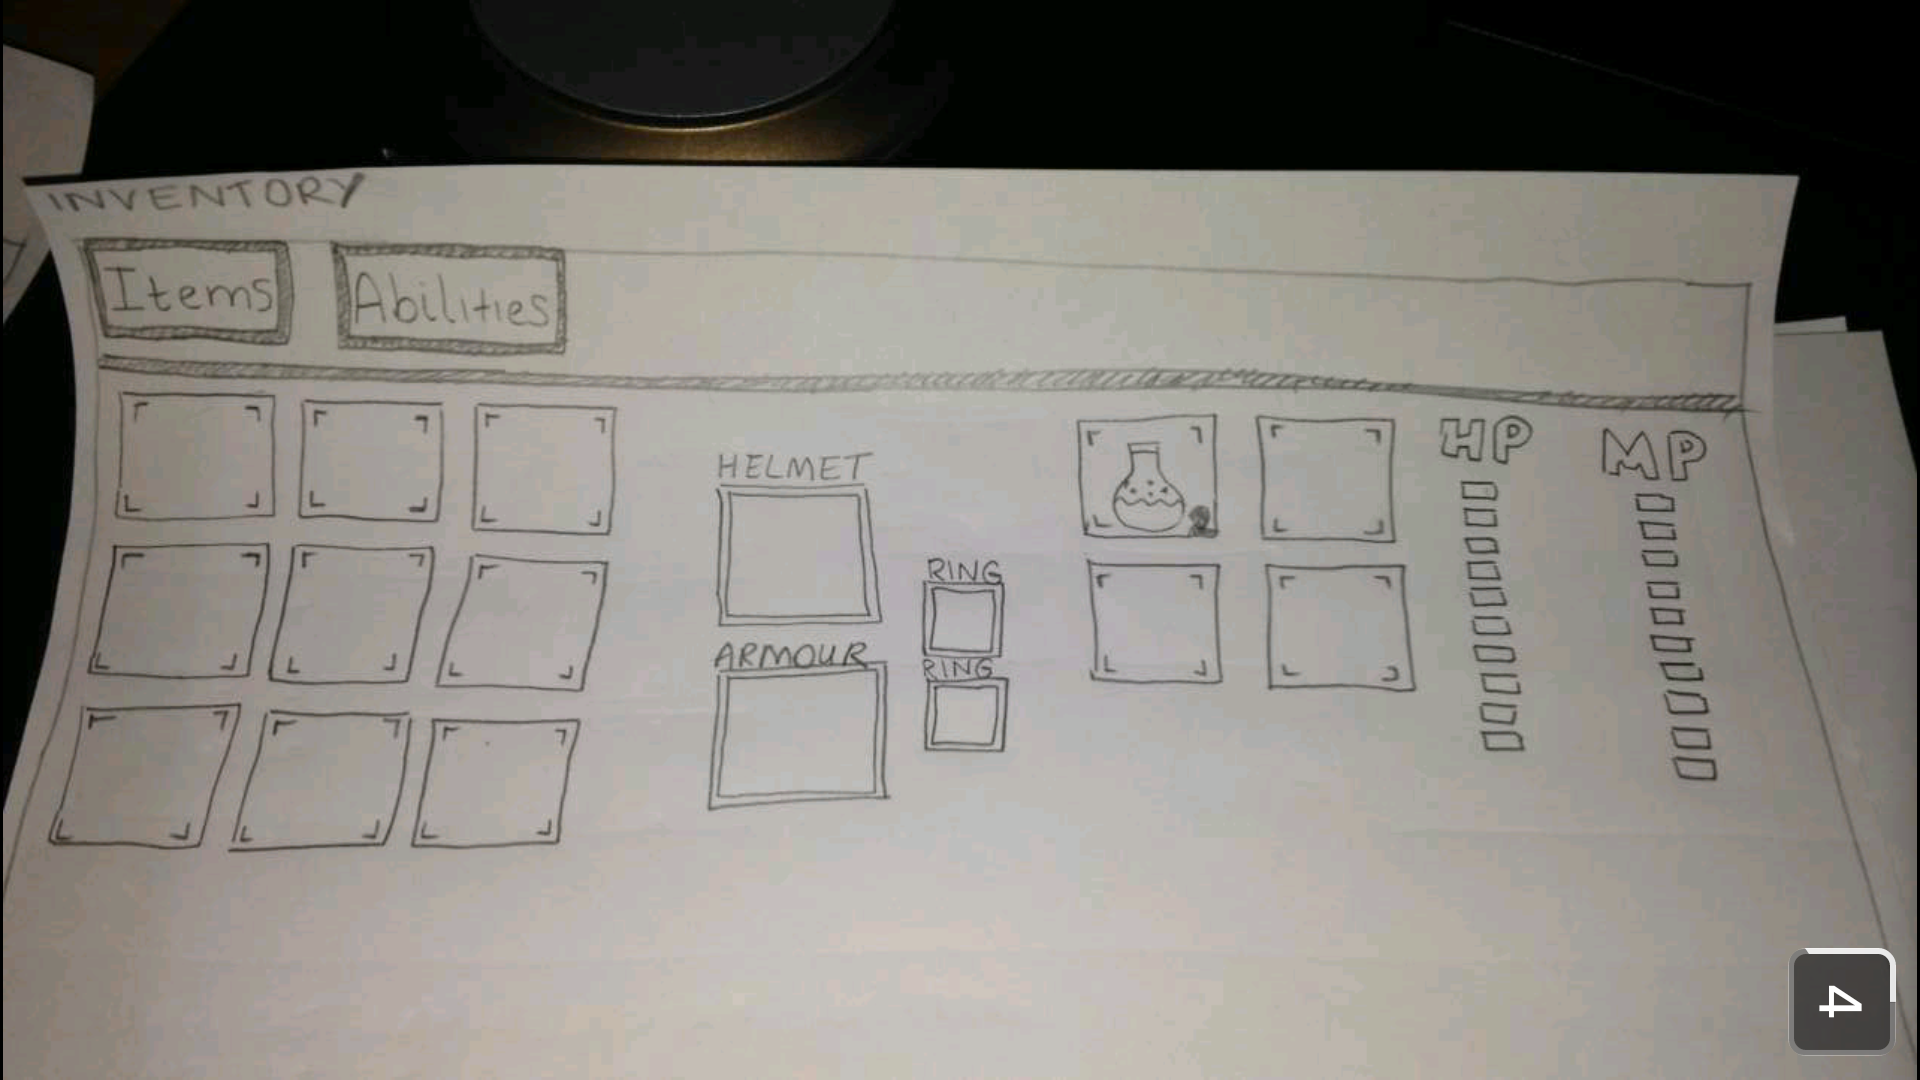 INVENTORY
Items
Abilities
HP
MP
HELMET
RING
ARMOUR
RING
4